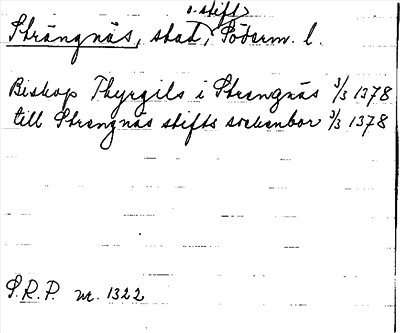 Strängnäs, stad, o. stift, Söderm. l.
Biskop Thyrgils i Strengnäs 3/3 1378
till Strengnäs stifts sockenbor 3/3 1378
S.R.P. nr. 1322